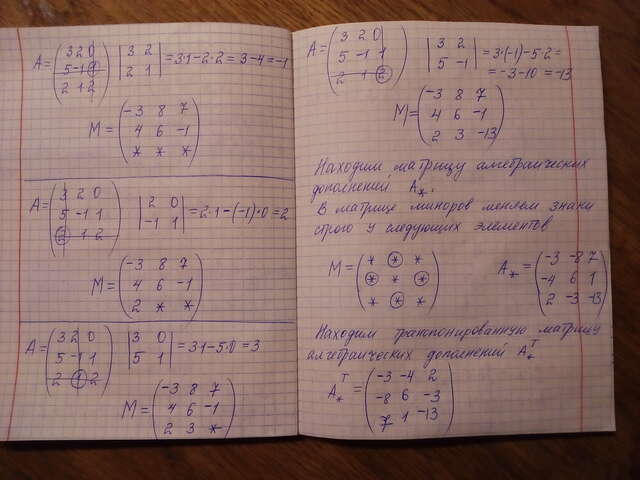 A = (3 2 0
5 -1 1
2 1 2)
|3 2
2 1| = 3·1-2·2=3-4=-1
M = (-3 8 7
4 6 -1
* * *)
A = (3 2 0
5 -1 1
2 1 2)
|2 0
-1 1| = 2·1-(-1)·0=2
M = (-3 8 7
4 6 -1
2 * *)
A = (3 2 0
5 -1 1
2 1 2)
|3 0
5 1| = 3·1-5·0=3
M = (-3 8 7
4 6 -1
2 3 *)
A = (3 2 0
5 -1 1
2 1 2)
|3 2
5 -1| = 3·(-1)-5·2=
= -3-10=-13
M = (-3 8 7
4 6 -1
2 3 -13)
Находим матрицу алгебраических
дополнений A*.
В матрице миноров меняем знаки
строго у следующих элементов
M = (* * *
* * *
* * *)
A* = (-3 -8 7
-4 6 1
2 -3 -13)
Находим транспонированную матрицу
алгебраических дополнений A*^T
A*^T = (-3 -4 2
-8 6 -3
7 1 -13)